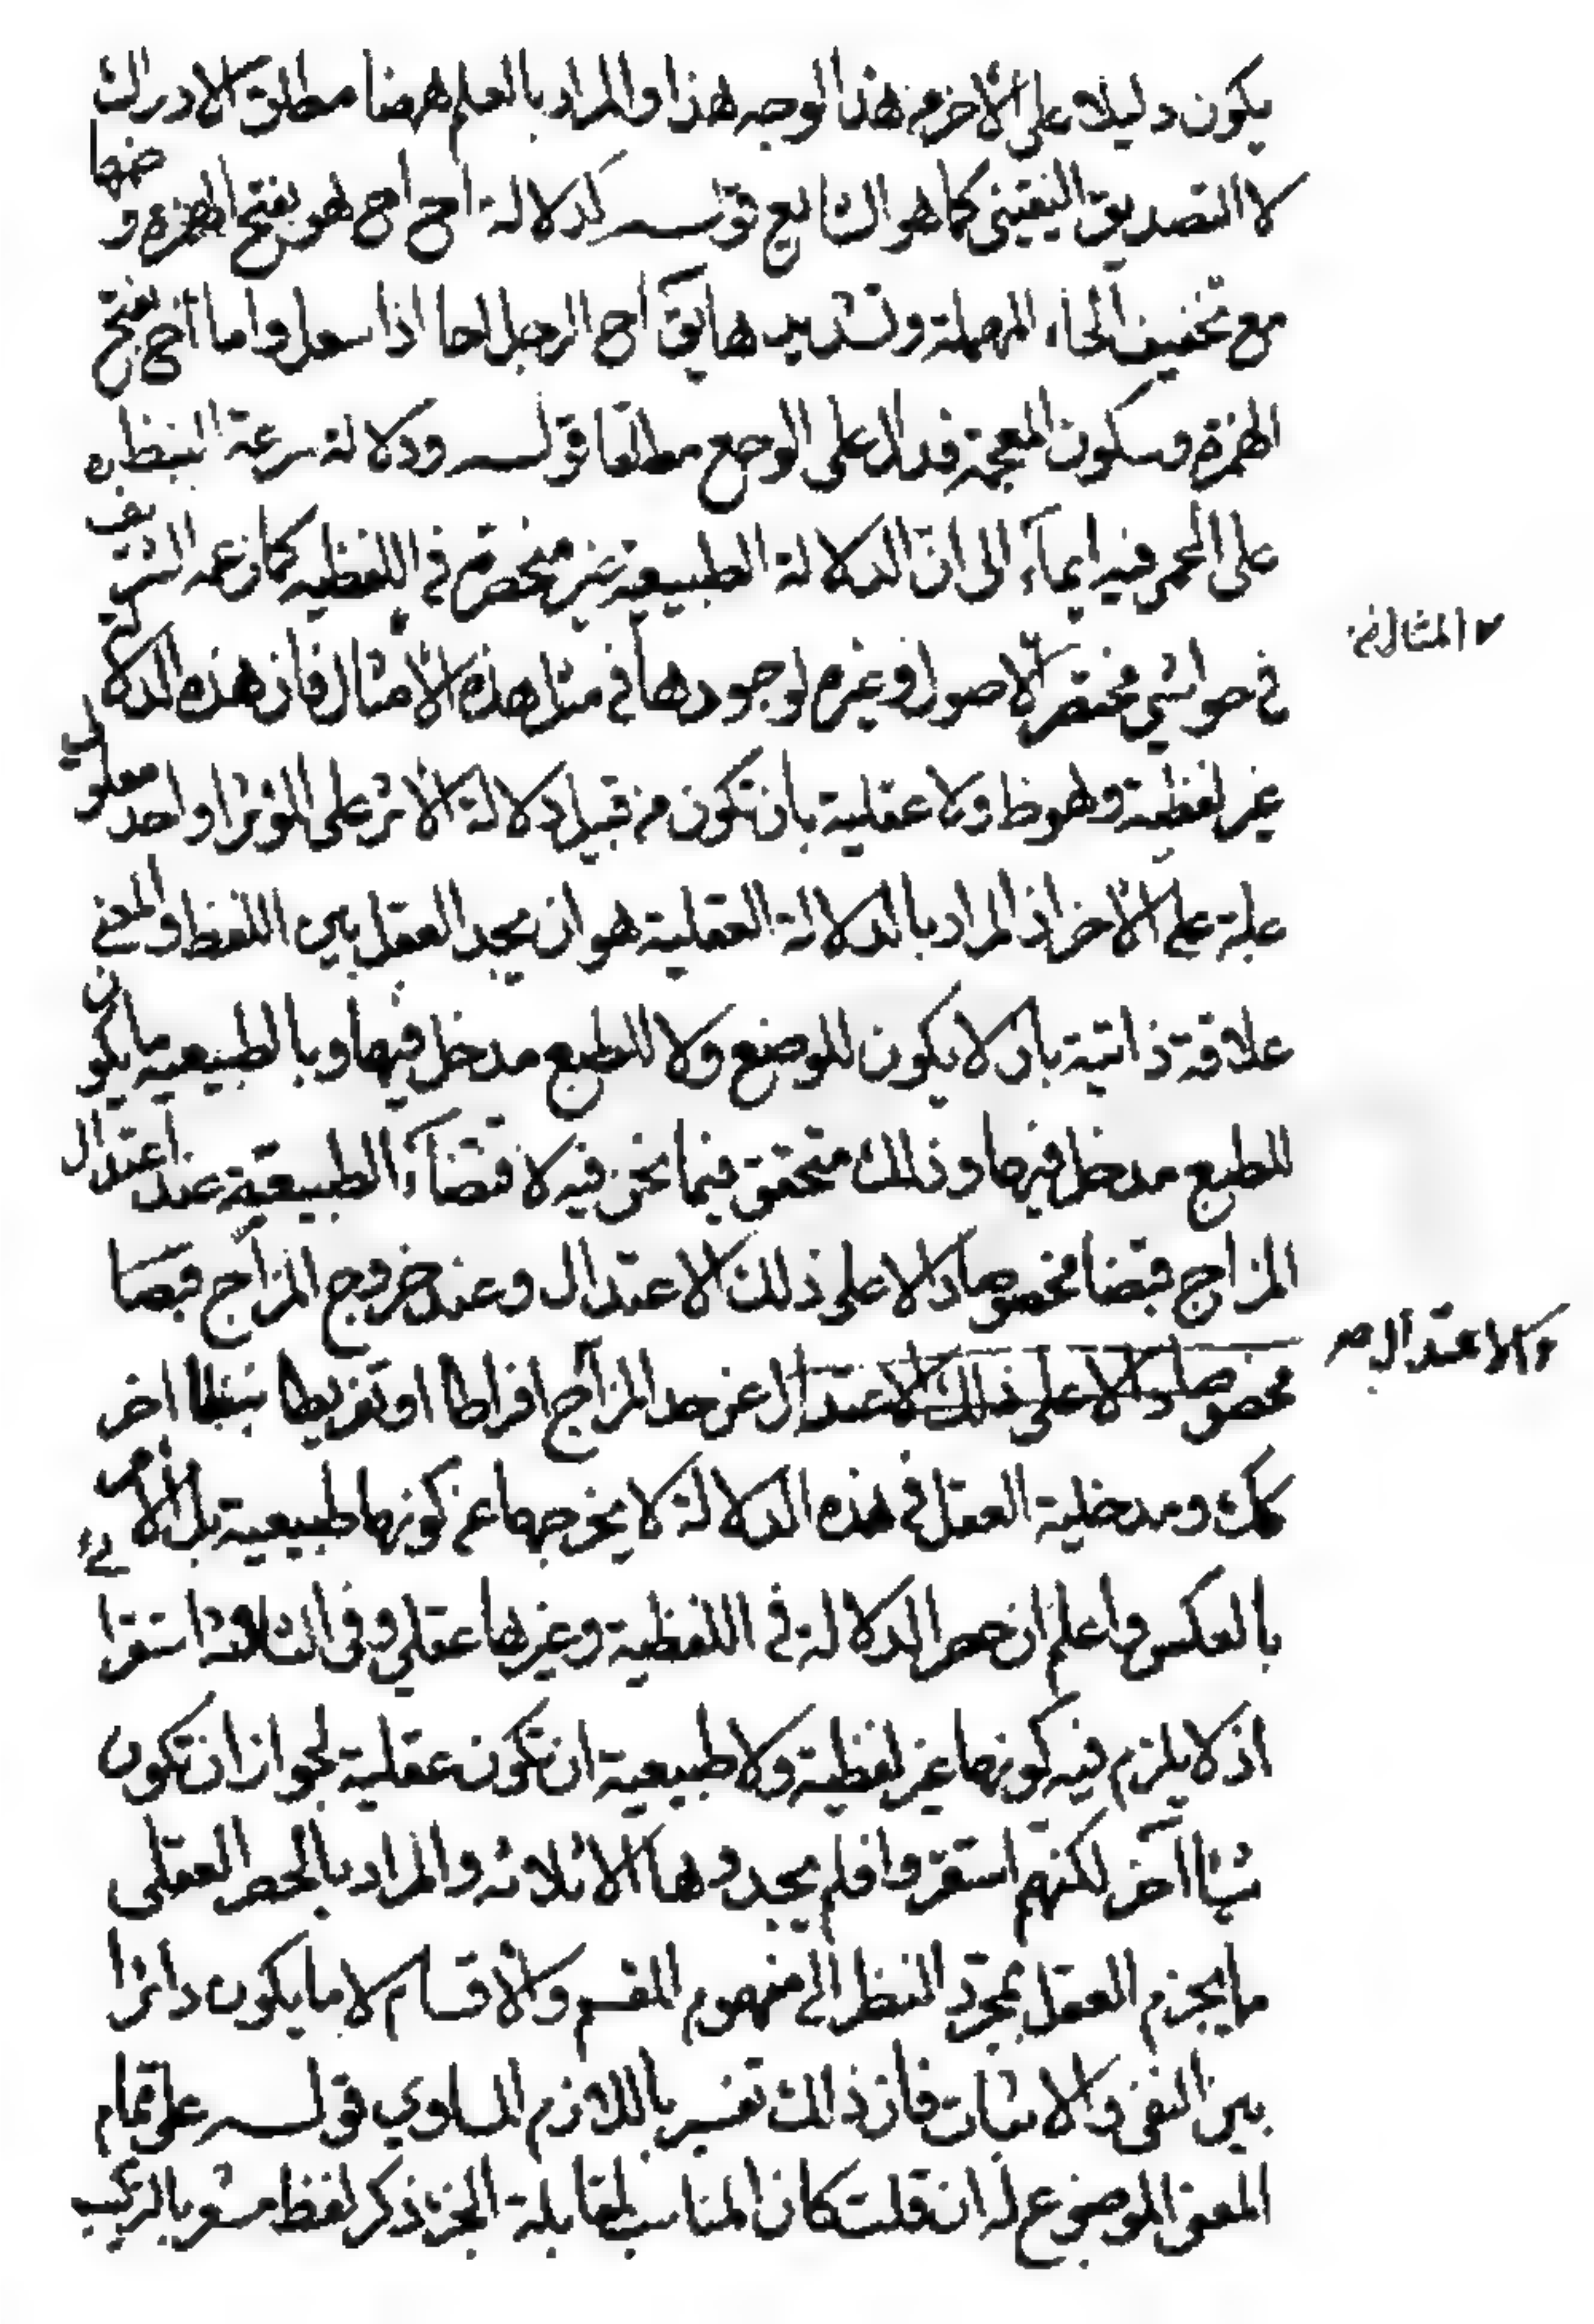 يكون دليلا على الآخر من هذا الوجه هذا والمراد بالعلم ههنا مطلق الادراك
لا التصديق اليقيني كما هو الشايع قوله كدلالة اح اح هو بفتح الهمزة وضمها
مع تخفيف الحاء المهملة وتشديدها يق اح الرجل احا اذا سعل واما اخ بفتح
الهمزة وسكون المعجمة فدال على الوجع مطلقا قوله ودلالة سرعة النبض
على الحمى فيه ايماء الى ان الدلالة الطبيعية غير منحصرة في اللفظيه كما زعمه الشريف
في حواشي مختصر الاصول وغيره لوجودها في مثل هذه الامثال فان هذه الدلالة
المثال خ
غير لفظية وهو ظ ولا عقلية بان تكون من قبيل دلالة الاثر على المؤثر او احد معلولي
علة على الآخر اذ المراد بالدلالة العقلية هو ان يجد العقل بين اللفظ والمعنى
علاقة ذاتية بان لا يكون للوضع ولا للطبع مدخل فيها وبالطبيعية ما يكون
للطبع مدخل فيها وذلك متحقق فيما نحن فيه لاقتضاء الطبيعة عند اعتدال
المزاج قبضا مخصوصا دالا على ذلك الاعتدال وعند خروج المزاج قبضا
مخصوصا دالا على ذلك الاعتدال عن حد المزاج افراطا او تفريطا نبضا اخر
والاعتدال صح
كك ومدخلية العقل في هذه الدلالة لا يخرجها عن كونها طبيعية بل الامر
بالعكس واعلم ان حصر الدلالة في اللفظية وغيرها عقلي وفي الثلاثة استقرائي
اذ لا يلزم فيه كونها غير لفظية ولا طبيعية ان تكون عقلية لجواز ان تكون
شيئا آخر لكنهم استقروا فلم يجدوها الا ثلاثه والمراد بالحصر العقلي
ما يجزم العقل بمجرد النظر الى مفهوم المقسم والاقسام لا ما يكون دائرا
بين النفي والاثبات فان ذالك تفسير باللازم المساوي قوله على تمام
المعنى الموضوع له ان قلت كان المناسب لمقابلة الجزء ذكر لفظ مشعر بالتركيب